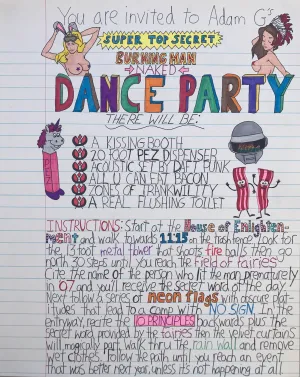 You are invited to Adam G's
SUPER TOP SECRET
BURNING MAN
NAKED
DANCE PARTY
THERE WILL BE:
A KISSING BOOTH
20 FOOT PEZ DISPENSER
ACOUSTIC SET BY DAFT PUNK
ALL U CAN EAT BACON
ZONES OF TRANKWILITY
A REAL FLUSHING TOILET
INSTRUCTIONS: Start at the House of Enlighten-
ment and walk towards 11:15 on the trash fence. Look for
the 13 foot metal tower that shoots fire balls then go
north 50 steps until you reach the field of fairies.
Cite the name of the person who lit the man prematurely
in 07 and you'll receive the secret word of the day.
Next follow a series of neon flags with obscure plat-
itudes that lead to a camp with NO SIGN. In the
entryway, recite the 10 PRINCIPLES backwards plus the
secret word provided by the fairies then the velvet curtains
will magically part. Walk thru the rain wall and remove
wet clothes. Follow the path until you reach an event
that was better next year, unless its not happening at all.